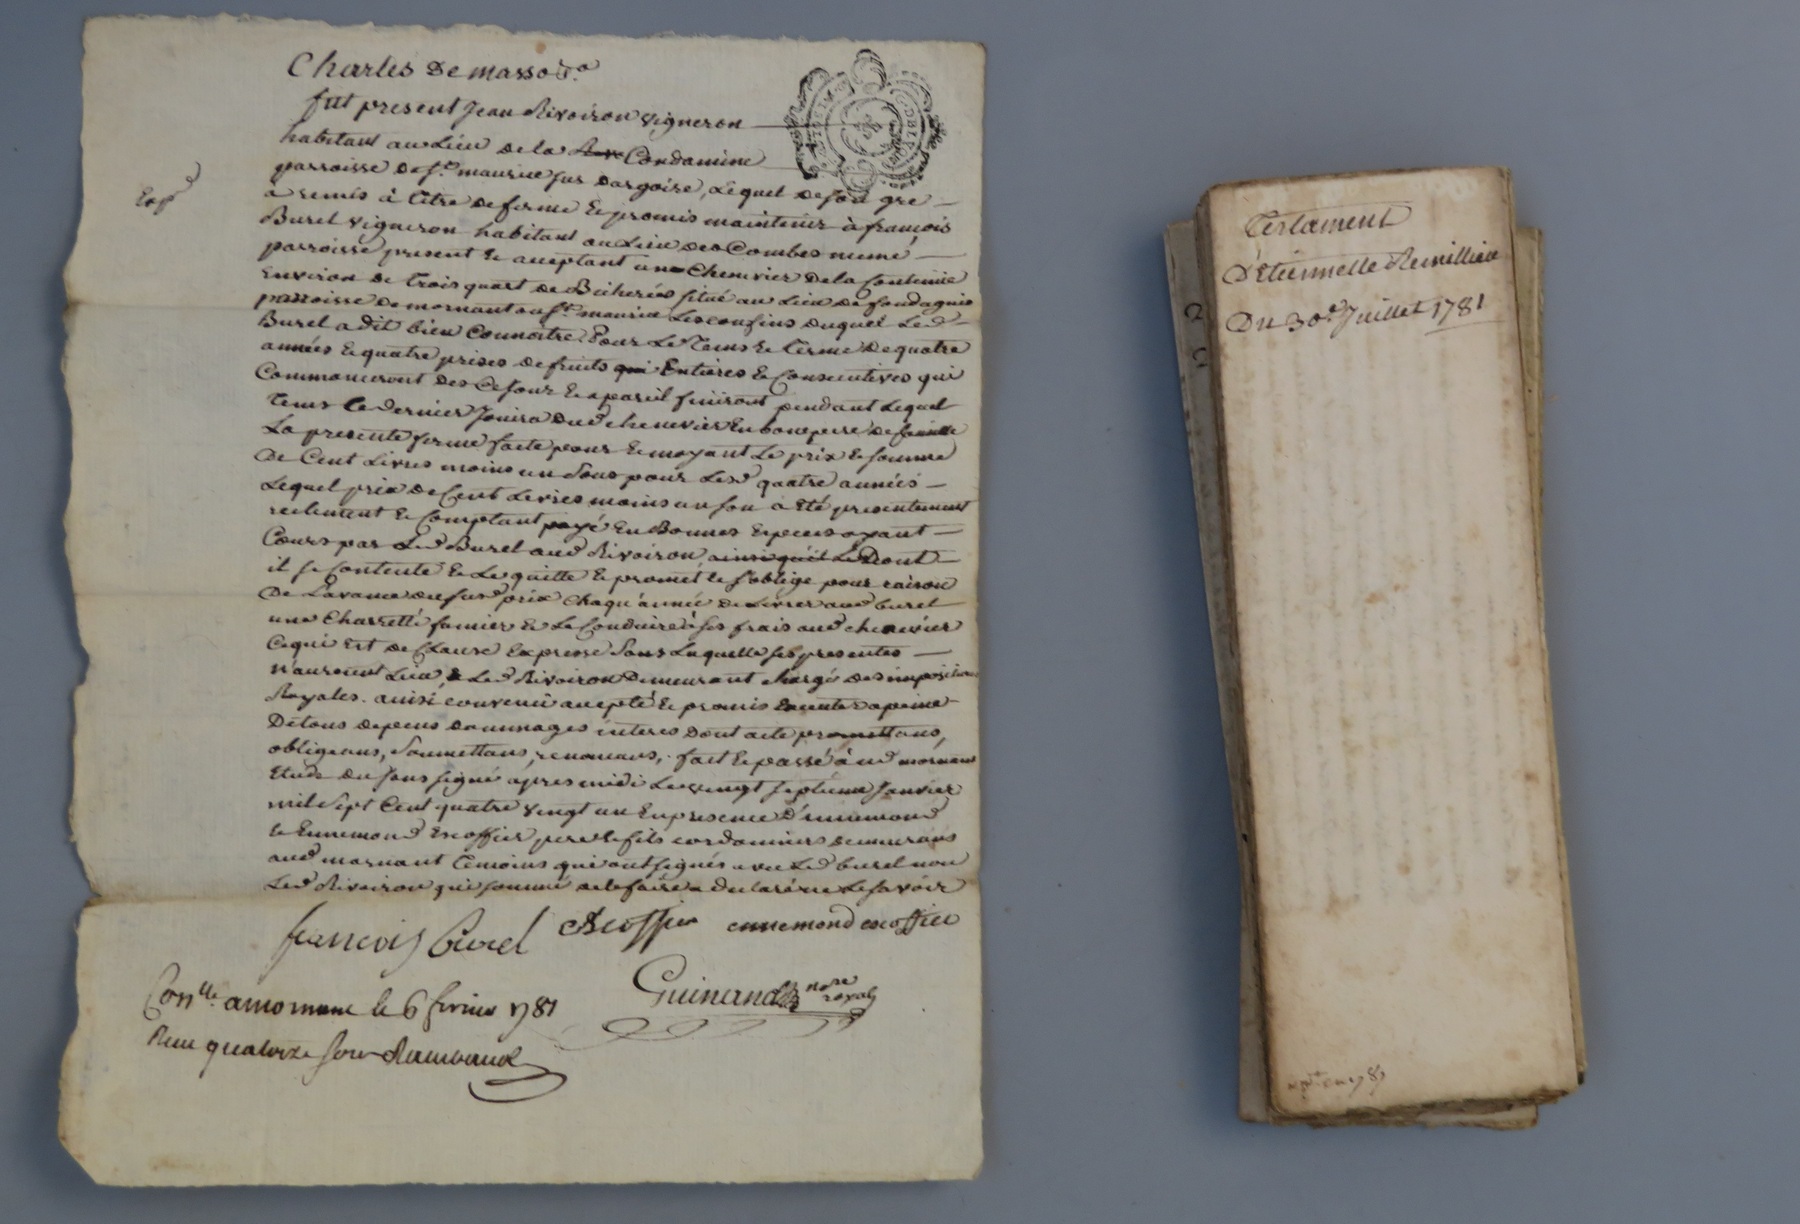 Charles De masso
fut present Jean Rivoiron vigneron
habitant au Lieu de la Condamine
parroisse de st. maurice sur dargoire, Lequel de son gre
Exp
a remis à titre de ferme & promis maintenir à françois
Burel vigneron habitant au Lieu des Combes meme
parroisse present & aceptant une Chenevier de la Contenue
Environ de trois quart de Bicherée situé au Lieu de fondagnie
parroisse de mornant ou st. maurice Les confins duquel Led
Burel a dit bien Connoitre Pour Le Tems & terme de quatre
années & quatre prises de fruits Entieres & Consecutives qui
Commanceront des ce jour & a pareil finiront pendant Lequel
tems Ce dernier Jouira dud chenevier En bon pere de famille
La presente ferme faite pour & moyant Le prix & somme
De Cent Livres moins un Sous pour Lesd quatre années
Lequel prix de Cent Livres moins un sou a été presentement
reelement & Comptant payé En Bonnes Especes ayant
Cours par Led Burel aud Rivoiron, Dont
il se Contente & Le quitte & promet & s'oblige pour raison
De Lavance dususd prix Chaqu'année de Livrer aud burel
une Charretté fumier & Le Conduire à ses frais aud chenevier
Ce qui Est de Clause Expresse Sans Laquelle ses presentes
n'auroient Lieu, Led Rivoiron Demeurant chargé des impositions
Royales. ainsi convenu accepté & promis Executer a peine
De tous depens dommages interes Dont acte promettans,
obligeans, Soumettans, renonceans, fait & passé à aud mornant
Etude du sous signé apres midi Le vingt septieme Janvier
mil Sept Cent quatre vingt un En presence D'ennemond
& Ennemond Escoffier pere & fils cordonniers demeurans
aud mornant Temoins qui ont signés avec Led burel non
Led Rivoiron qui sommé de le faire a declaré ne Le savoir
françois Burel Escoffier ennemond escoffier
Guinand nore royal
Conlle. a mornant le 6 fevrier 1781
Reçu quatorze sous Rambaud
Testament
D'Etiennette Remilliere
Du 30e. Juillet 1781